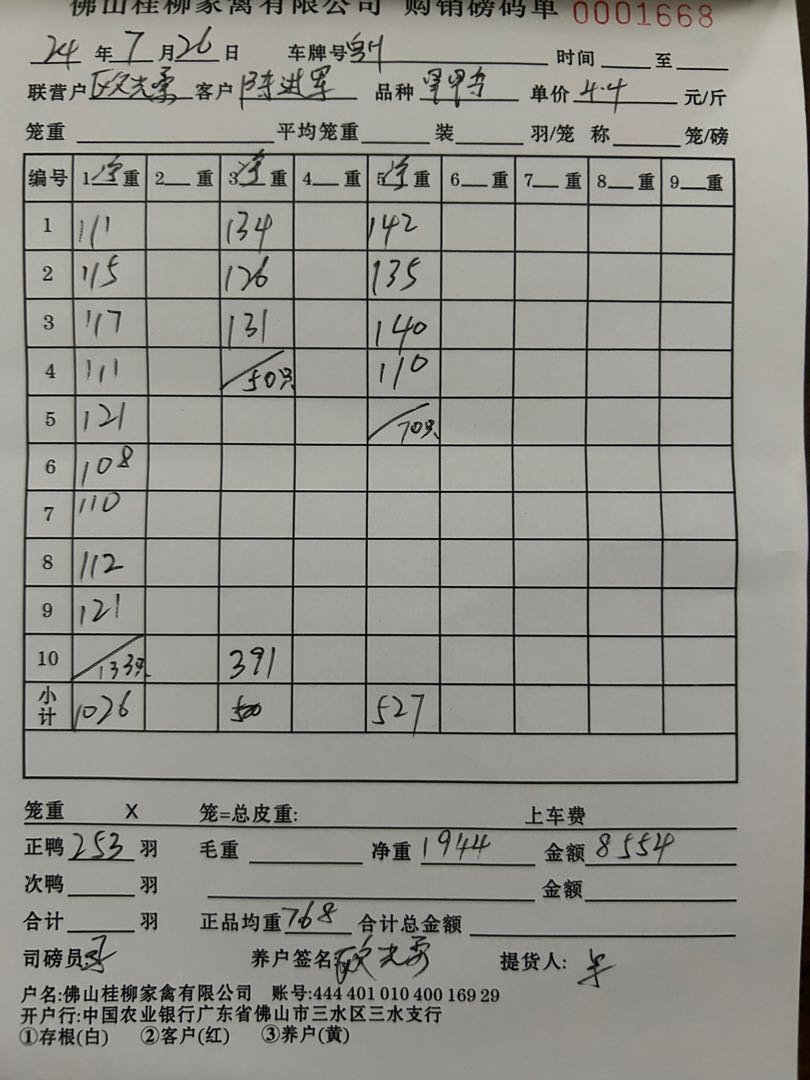 佛山桂柳家禽有限公司 购销磅码单 0001668
24 年 7 月 26 日 车牌号 时间 至
联营户 欧光勇 客户 陈进军 品种 单价 4.4 元/斤
笼重 平均笼重 装 羽/笼 称 笼/磅
编号 1净重 2 重 3净重 4 重 5净重 6 重 7 重 8 重 9 重
1 111 134 142
2 115 126 135
3 117 131 140
4 111 50只 110
5 121 70只
6 108
7 110
8 112
9 121
10 133只 391
小计 1026 527
笼重 X 笼=总皮重: 上车费
正鸭 253 羽 毛重 净重 1944 金额 8554
次鸭 羽 金额
合计 羽 正品均重 768 合计总金额
司磅员 养户签名 欧光勇 提货人:
户名:佛山桂柳家禽有限公司 账号:444 401 010 400 169 29
开户行:中国农业银行广东省佛山市三水区三水支行
①存根(白) ②客户(红) ③养户(黄)